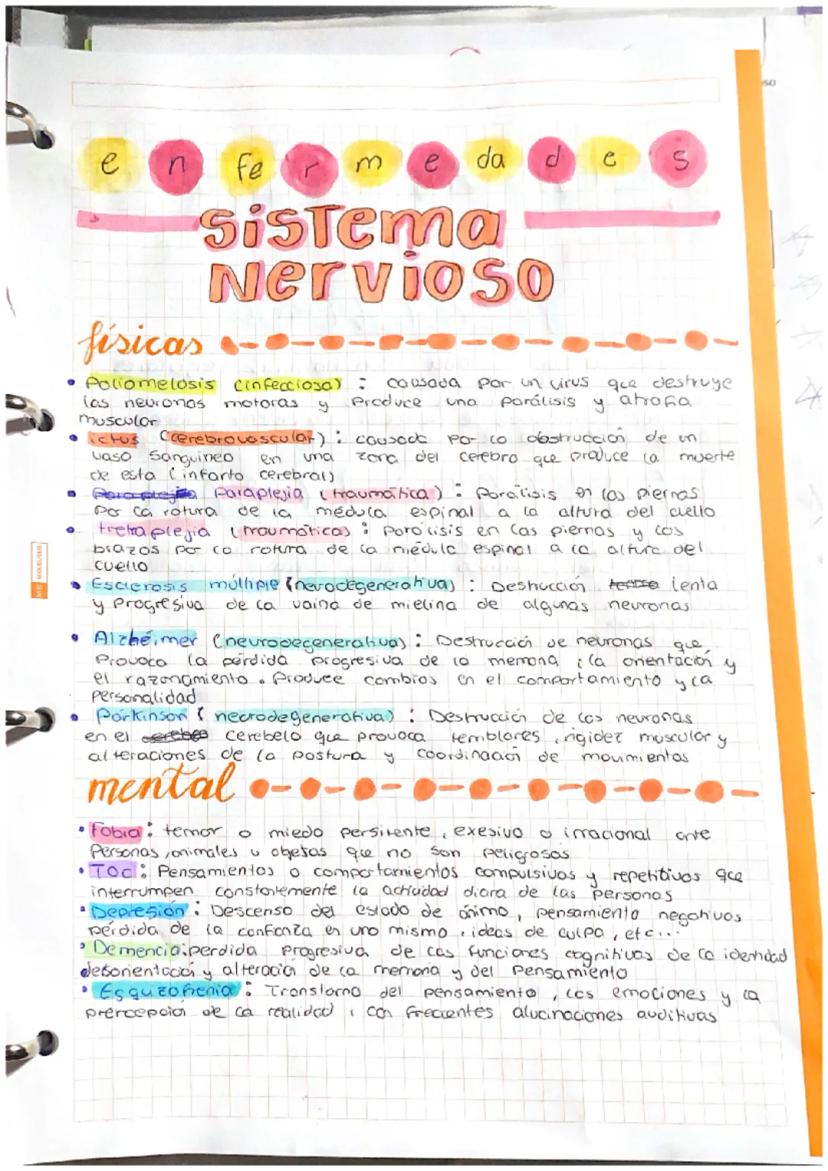 enfermedades
Sistema
Nervioso
físicas
• Poliomelosis (infecciosa) : causada por un virus que destruye
las neuronas motoras y produce una parálisis y atrofia
muscular
• ictus (cerebrovascular) : causada por la obstrucción de un
vaso sanguineo en una zona del cerebro que produce la muerte
de esta (infarto cerebral)
• Paraplejia (traumática) : Parálisis en las piernas
por la rotura de la médula espinal a la altura del cuello
• tretraplejia (traumáticas) : parálisis en las piernas y los
brazos por la rotura de la médula espinal a la altura del
cuello
• Esclerosis múltiple (neurodegenerativa) : Destrucción lenta
y progresiva de la vaina de mielina de algunas neuronas
• Alzhéimer (neurodegenerativa) : Destrucción de neuronas que
Provoca la pérdida progresiva de la memoria , la orientación y
el razonamiento . Produce cambios en el comportamiento y la
personalidad
• Párkinson (neurodegenerativa) : Destrucción de las neuronas
en el cerebelo que provoca temblores , rigidez muscular y
alteraciones de la postura y coordinación de movimientos
mental
• Fobia : temor o miedo persitente , exesivo o irracional ante
Personas , animales u objetos que no son peligrosos
• TOC : Pensamientos o comportamientos compulsivos y repetitivos que
interrumpen constantemente la actividad diara de las personas
• Depresión : Descenso del estado de ánimo , pensamiento negativos
pérdida de la confianza en uno mismo , ideas de culpa , etc...
• Demencia : perdida progresiva de las funciones cognitivas de la identidad
desorientación y alteración de la memoria y del pensamiento
• Esquizofrenia : Transtorno del pensamiento , las emociones y la
prercepción de la realidad , con frecuentes alucinaciones auditivas